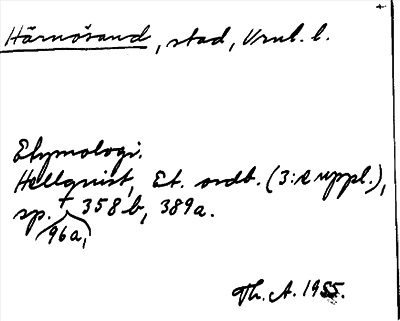 Härnösand, stad, Vrnl. l.
Etymologi.
Hellquist, Et. ordb. (3:e uppl.),
sp. 358 b, 389a.
96a,
Th. A. 1955.